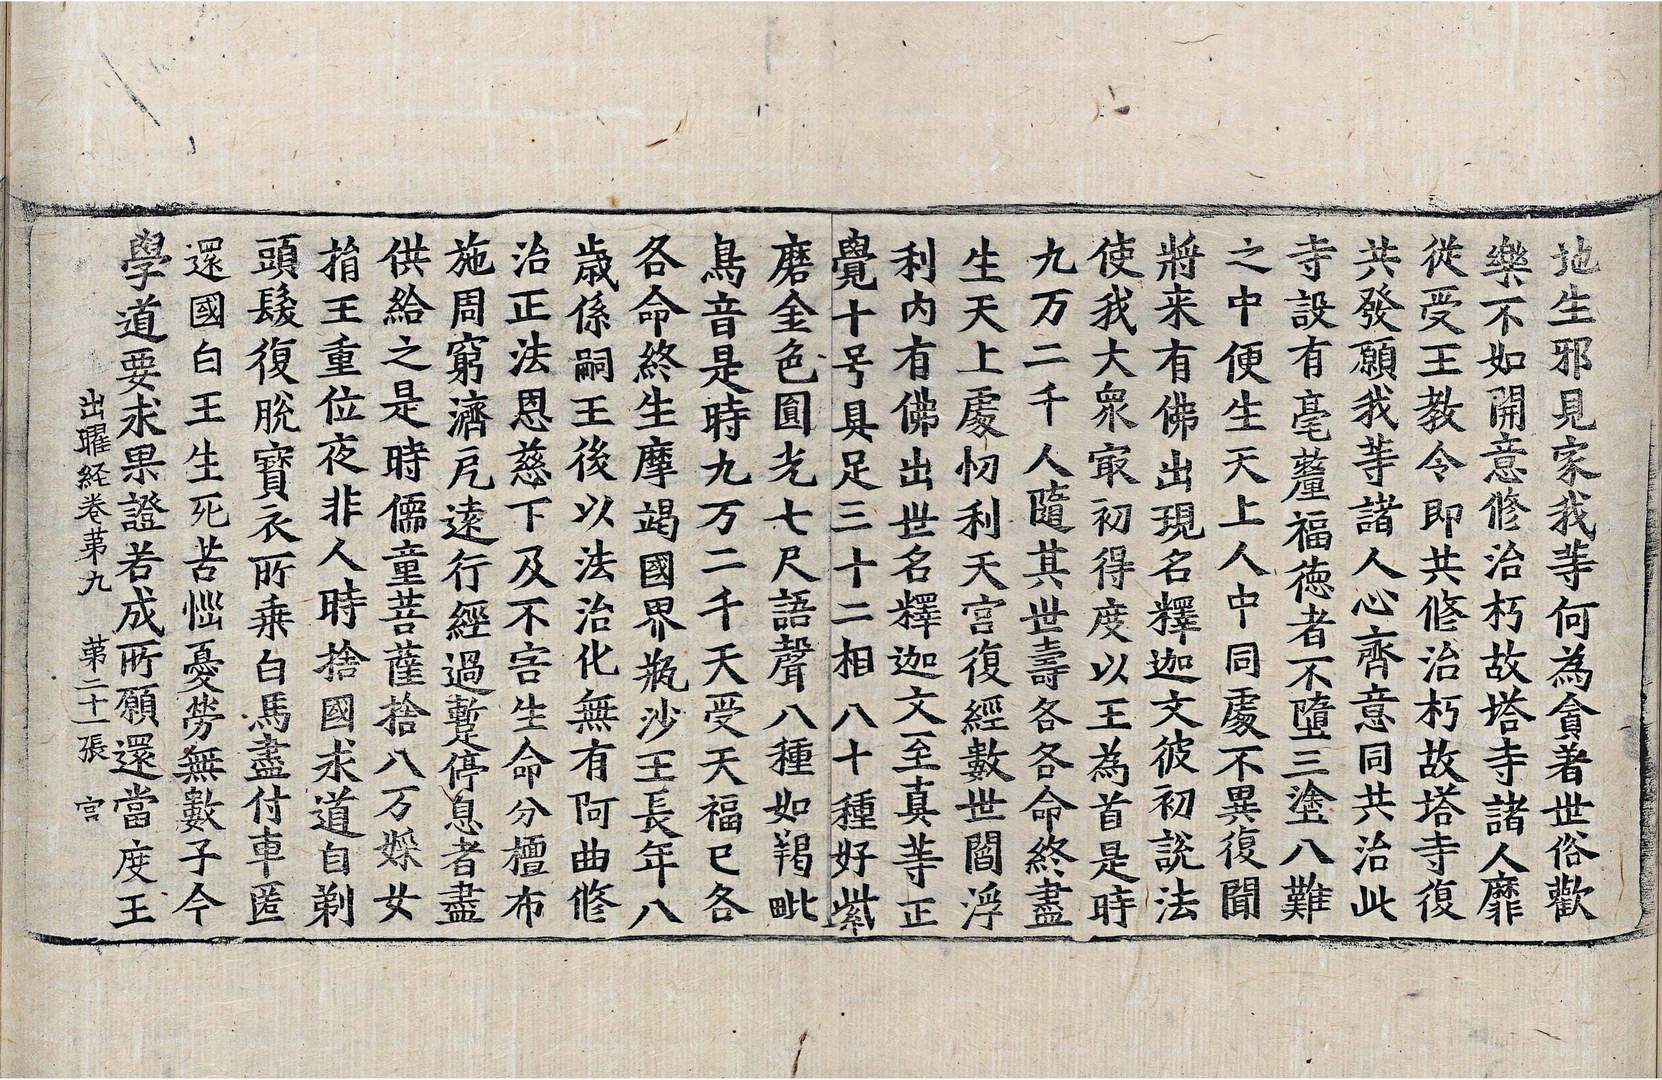 地生邪見家我等何為貪著世俗歡
樂不如開意修治朽故塔寺諸人靡
従受王教令即共修治朽故塔寺復
共發願我等諸人心齊意同共治此
寺設有毫𨤲福徳者不墮三塗八難
之中便生天上人中同處不異復聞
將来有佛出現名釋迦文彼初説法
使我大衆㝡初得度以王為首是時
九万二千人隨其世壽各各命終盡
生天上處忉利天宮復經數世閻浮
利内有佛出世名釋迦文至真等正
覺十号具足三十二相八十種好紫
磨金色圓光七尺語聲八種如羯毗
鳥音是時九万二千天受天福已各
各命終生摩竭國界瓶沙王長年八
歳係嗣王後以法治化無有阿曲修
治正法恩慈下及不害生命分檀布
施周窮濟厄遠行經過蹔停息者盡
供給之是時儒童菩薩捨八万婇女
捐王重位夜非人時捨國求道自剃
頭髮復脫寶衣所乗白馬盡付車匿
還國白王生死苦惱憂勞無數子今
學道要求果證若成所願還當度王
出曜経卷苐九 苐二十一張 宫